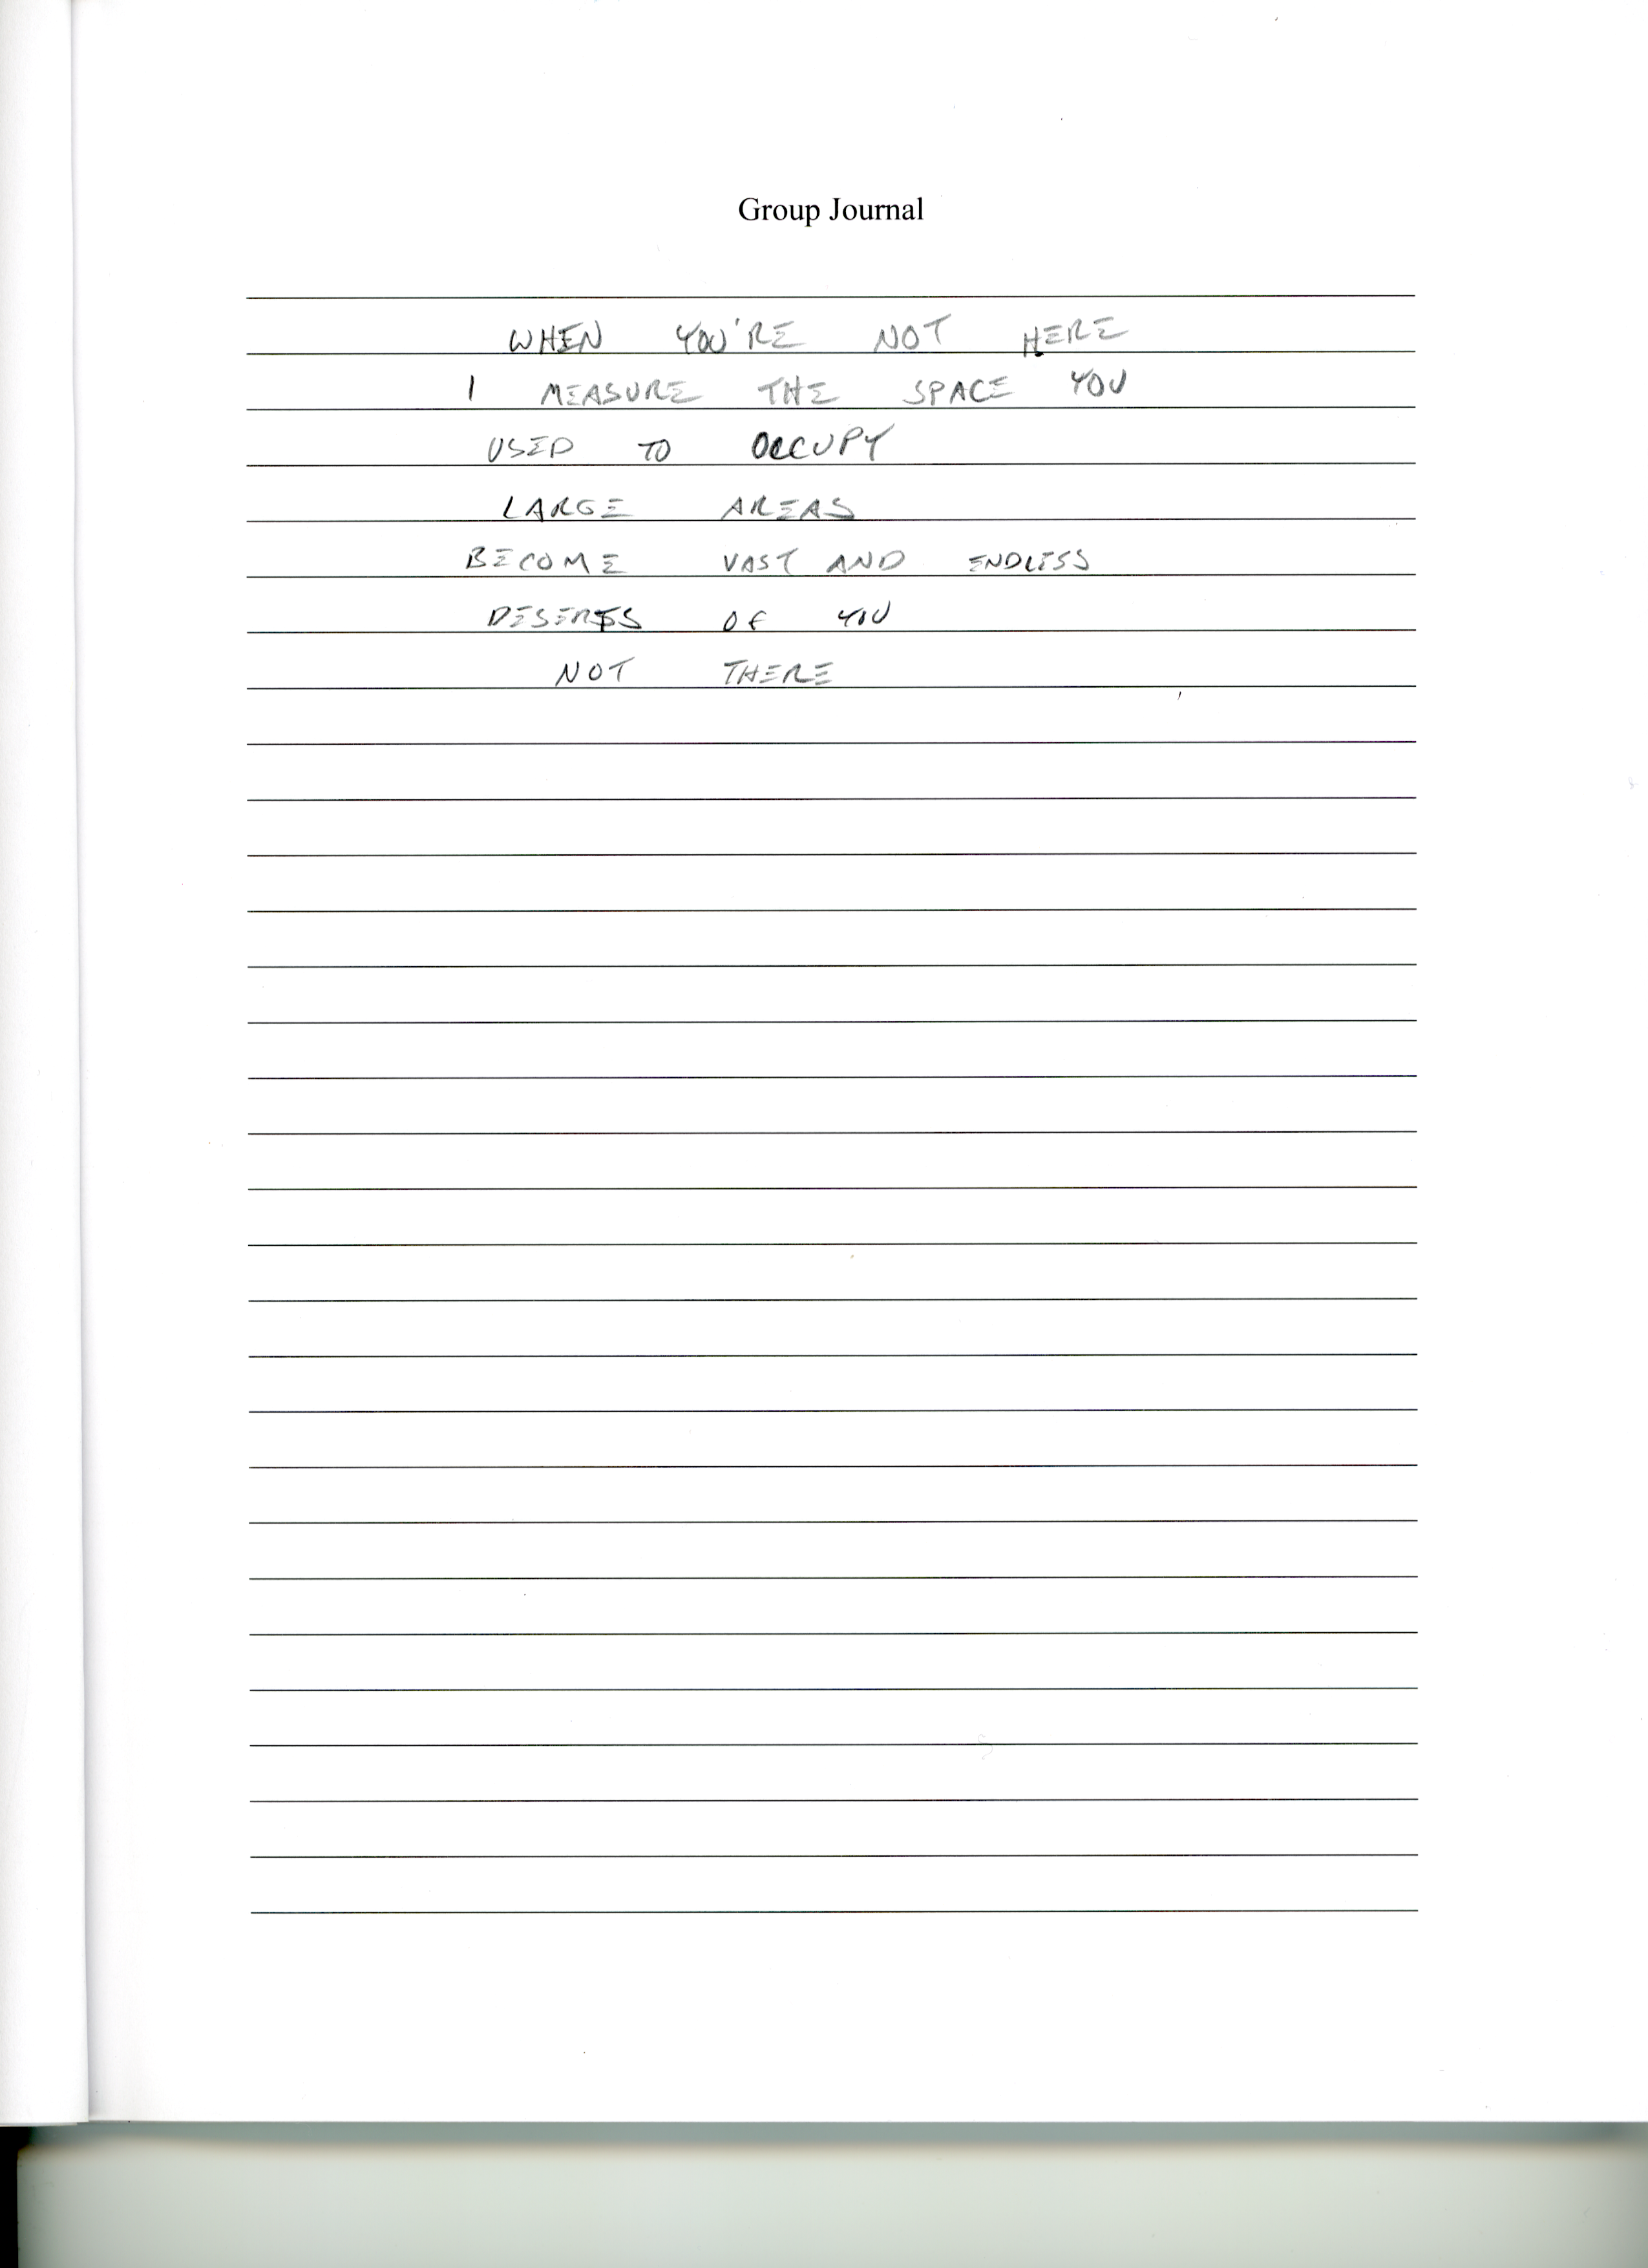 Group Journal
WHEN YOU'RE NOT HERE
I MEASURE THE SPACE YOU
USED TO OCCUPY
LARGE AREAS
BECOME VAST AND ENDLESS
DESERTS OF YOU
NOT THERE